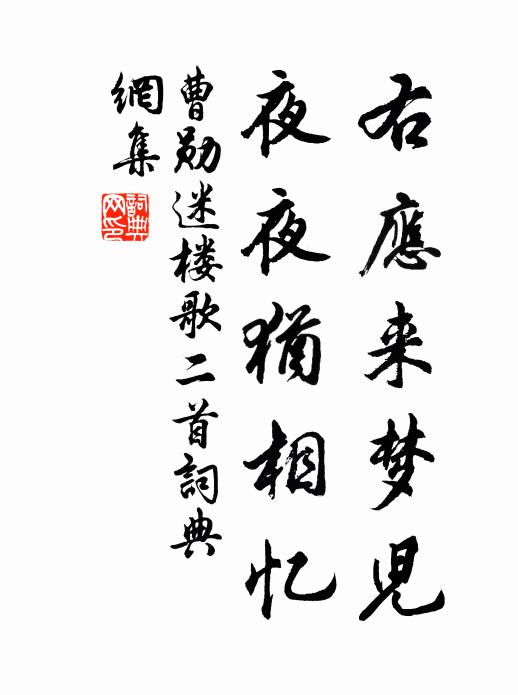 右應来梦児
夜夜猶相忆
曹勋迷楼歌二首詞典
網集
詞典网印